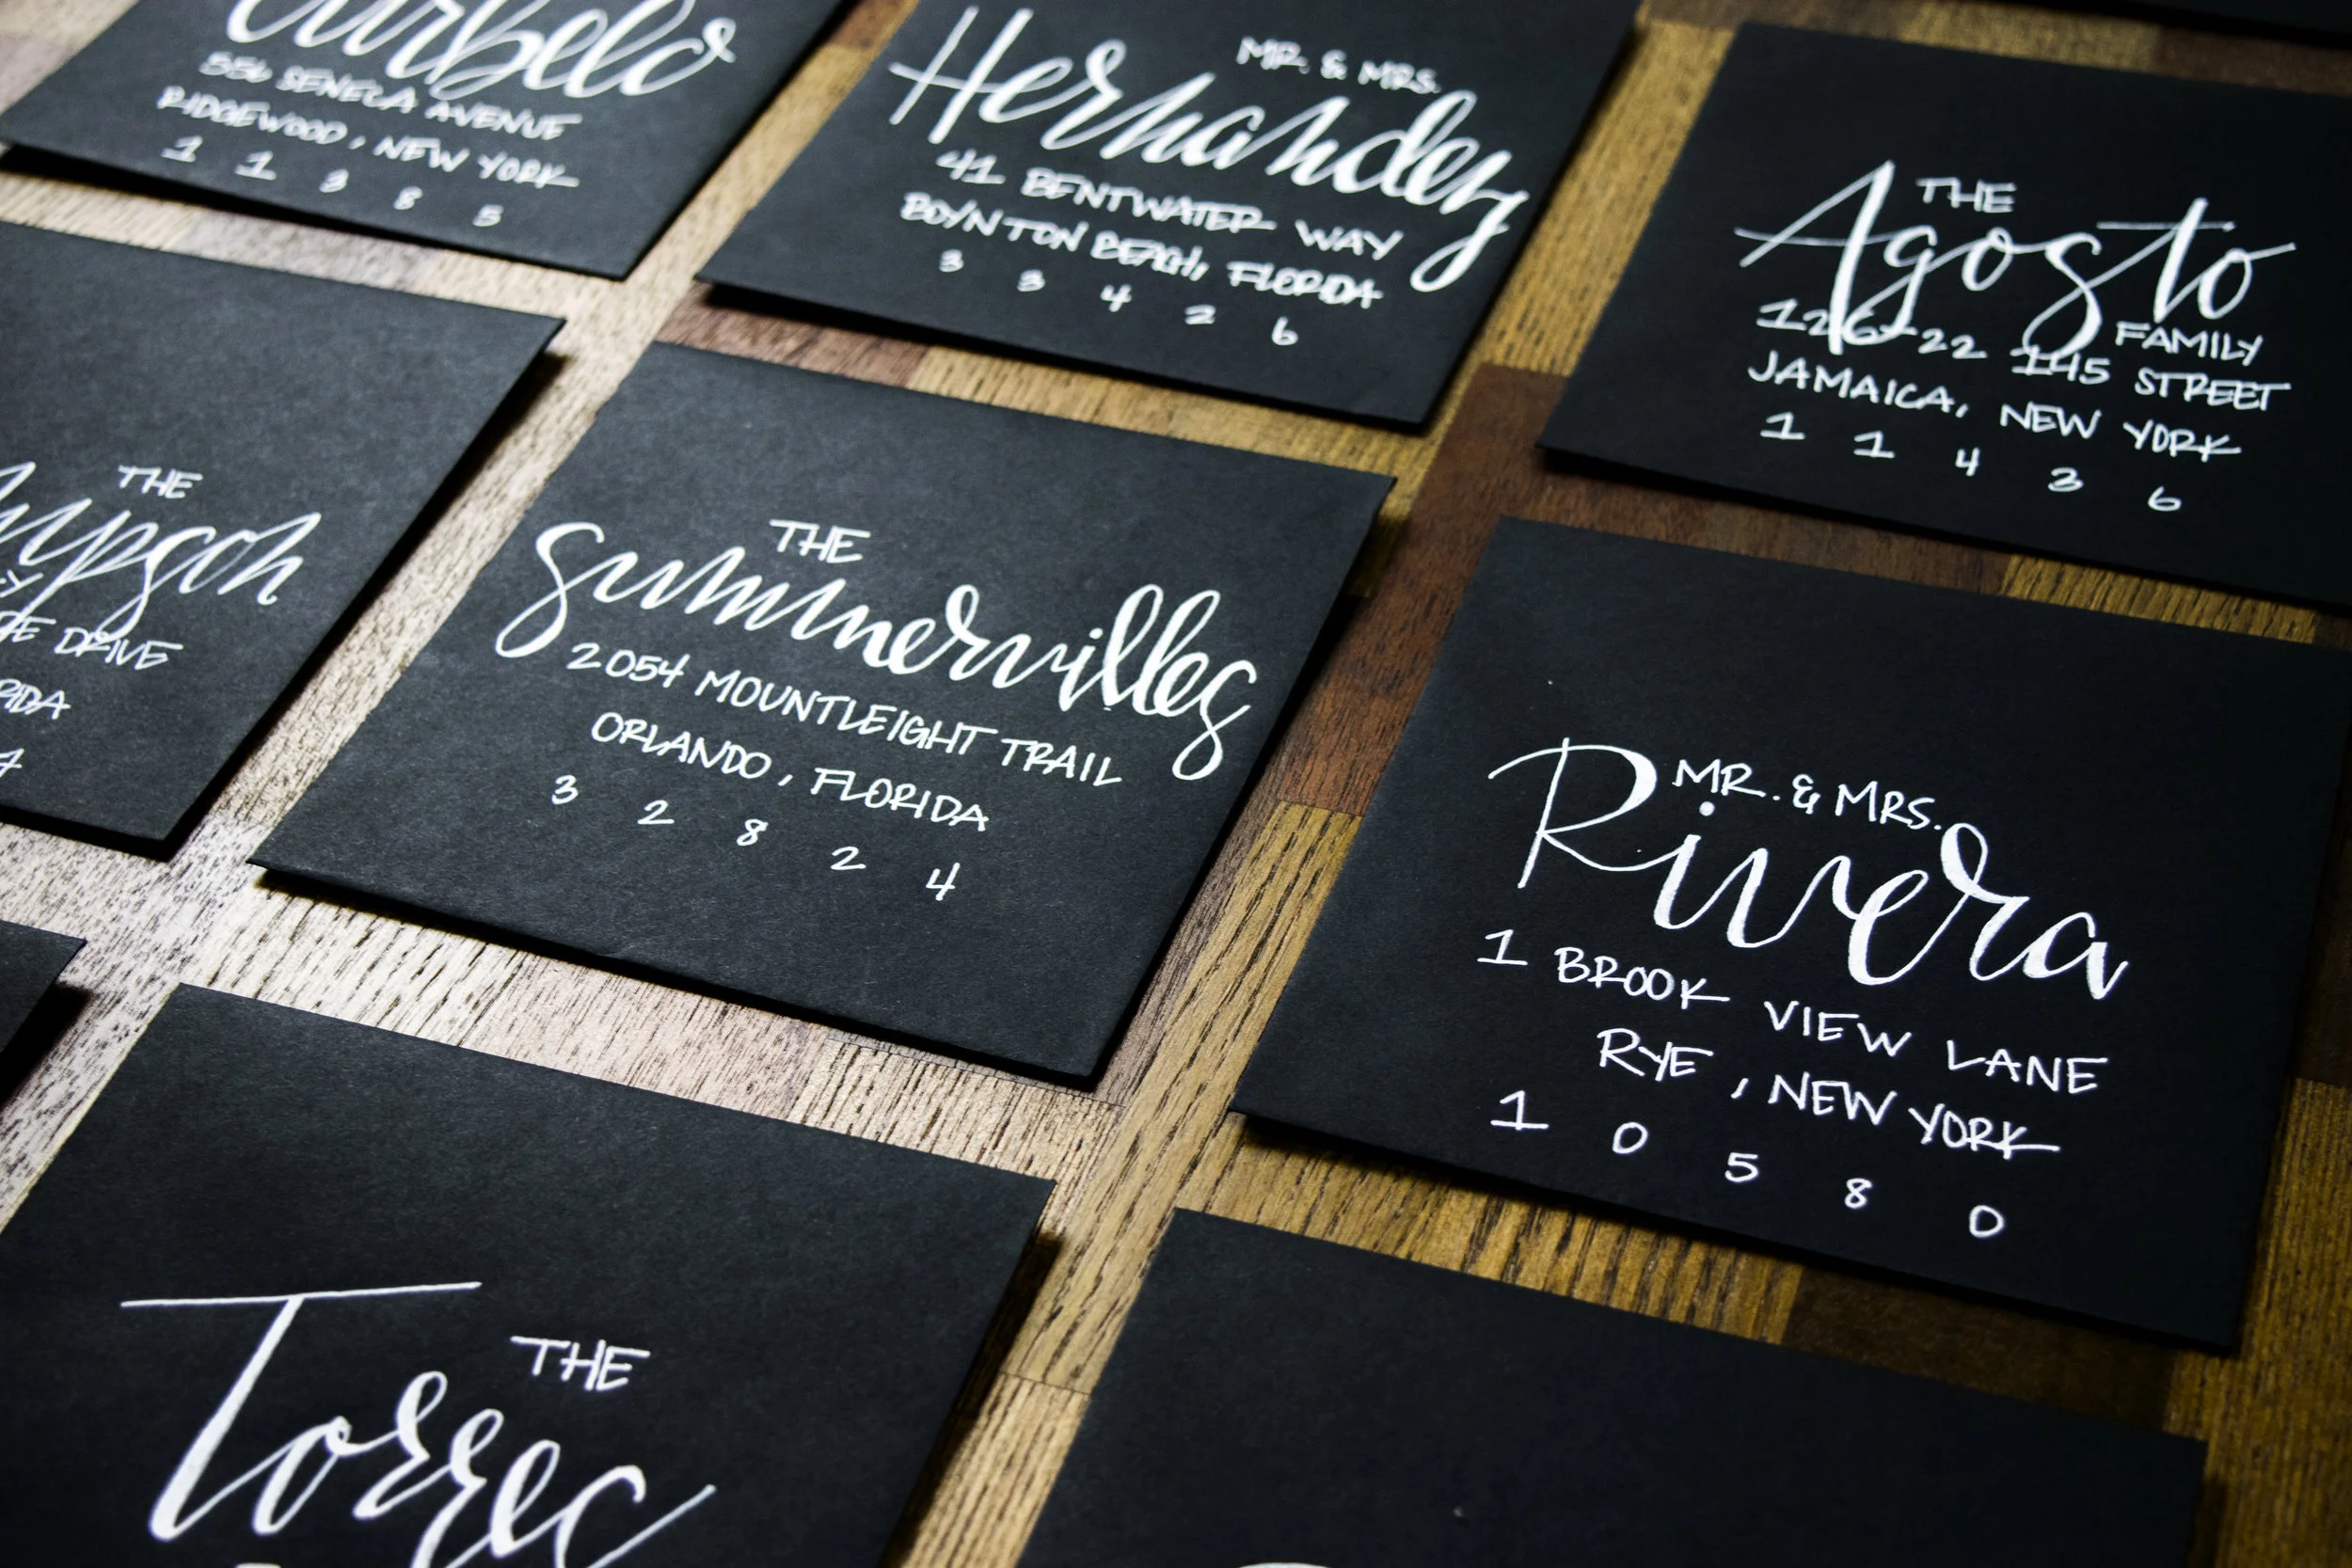 556 SENECA AVENUE
RIDGEWOOD, NEW YORK
1 1 3 8 5
MR. & MRS.
Hernandez
41 BENTWATER WAY
BOYNTON BEACH, FLORIDA
3 3 4 2 6
THE
Agosto
FAMILY
126-22 145 STREET
JAMAICA, NEW YORK
1 1 4 3 6
THE
DRIVE
THE
Summervilles
2054 MOUNTLEIGHT TRAIL
ORLANDO, FLORIDA
3 2 8 2 4
MR. & MRS.
Rivera
1 BROOK VIEW LANE
RYE, NEW YORK
1 0 5 8 0
THE